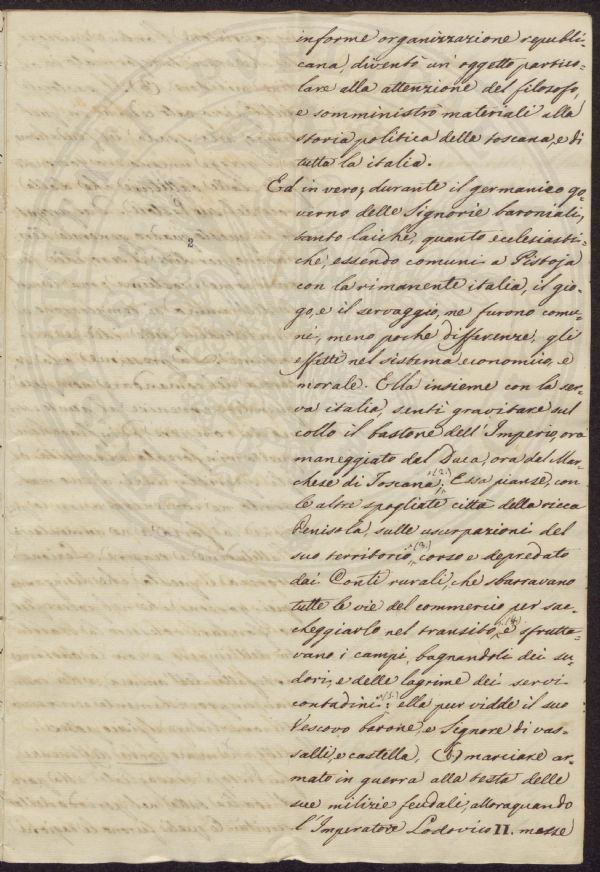 informe organizzazione republi-
cana, diventò un' oggetto partico-
lare alla attenzione del filosofo,
e somministrò materiali alla
storia politica della toscana, e di
tutta la italia.
Ed in vero; durante il germanico go-
verno delle Signorie baroniali,
tanto laiche, quanto ecclesiasti-
che, essendo comuni a Pistoja
con la rimanente italia, il gio-
go, e il servaggio, ne furono comu-
ni, meno poche differenze, gli
effetti nel sistema economico, e
morale. Ella insieme con la ser-
va italia, sentì gravitare sul
collo il bastone dell' Imperio, ora
maneggiato dal Duca, ora dal Mar-
chese di Toscana (2.); Essa pianse, con
le altre spogliate città della ricca
Penisola, sulle usurpazioni del
suo territorio (3.), corso e depredato
dai Conti rurali, che sbarravano
tutte le vie del commercio per sac-
cheggiarlo nel transito (4.), e sfrutta-
vano i campi, bagnandoli dei su-
dori, e delle lagrime dei servi
contadini (5.): ella pur vidde il suo
Vescovo barone, e Signore di vas-
salli, e castella, (6.) marciare ar-
mato in guerra alla testa delle
sue milizie feudali, alloraquando
l'Imperatore Lodovico II. mosse
2